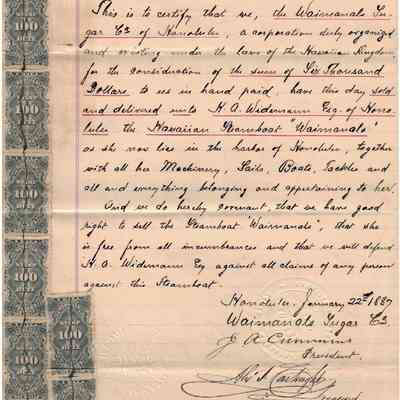 This is to certify that we, the Waimanalo Su-
gar Co of Honolulu, a corporation duly organized
and existing under the laws of the Hawaiian Kingdom,
for the consideration of the sum of Six Thousand
Dollars to us in hand paid, have this day sold
and delivered unto H. A. Widemann Esq. of Hono-
lulu the Hawaiian Steamboat "Waimanalo"
as she now lies in the harbor of Honolulu, together
with all her Machinery, Sails, Boats, Tackles and
all and everything belonging and appertaining to her.
And we do hereby covenant, that we have good
right to sell the Steamboat "Waimanalo", that she
is free from all incumbrances and that we will defend
H. A. Widemann Esq against all claims of any person
against this Steamboat.
Honolulu January 22d 1887
Waimanalo Sugar Co.
J A Cummins
President.
100
100
100
100
100
100
100
100